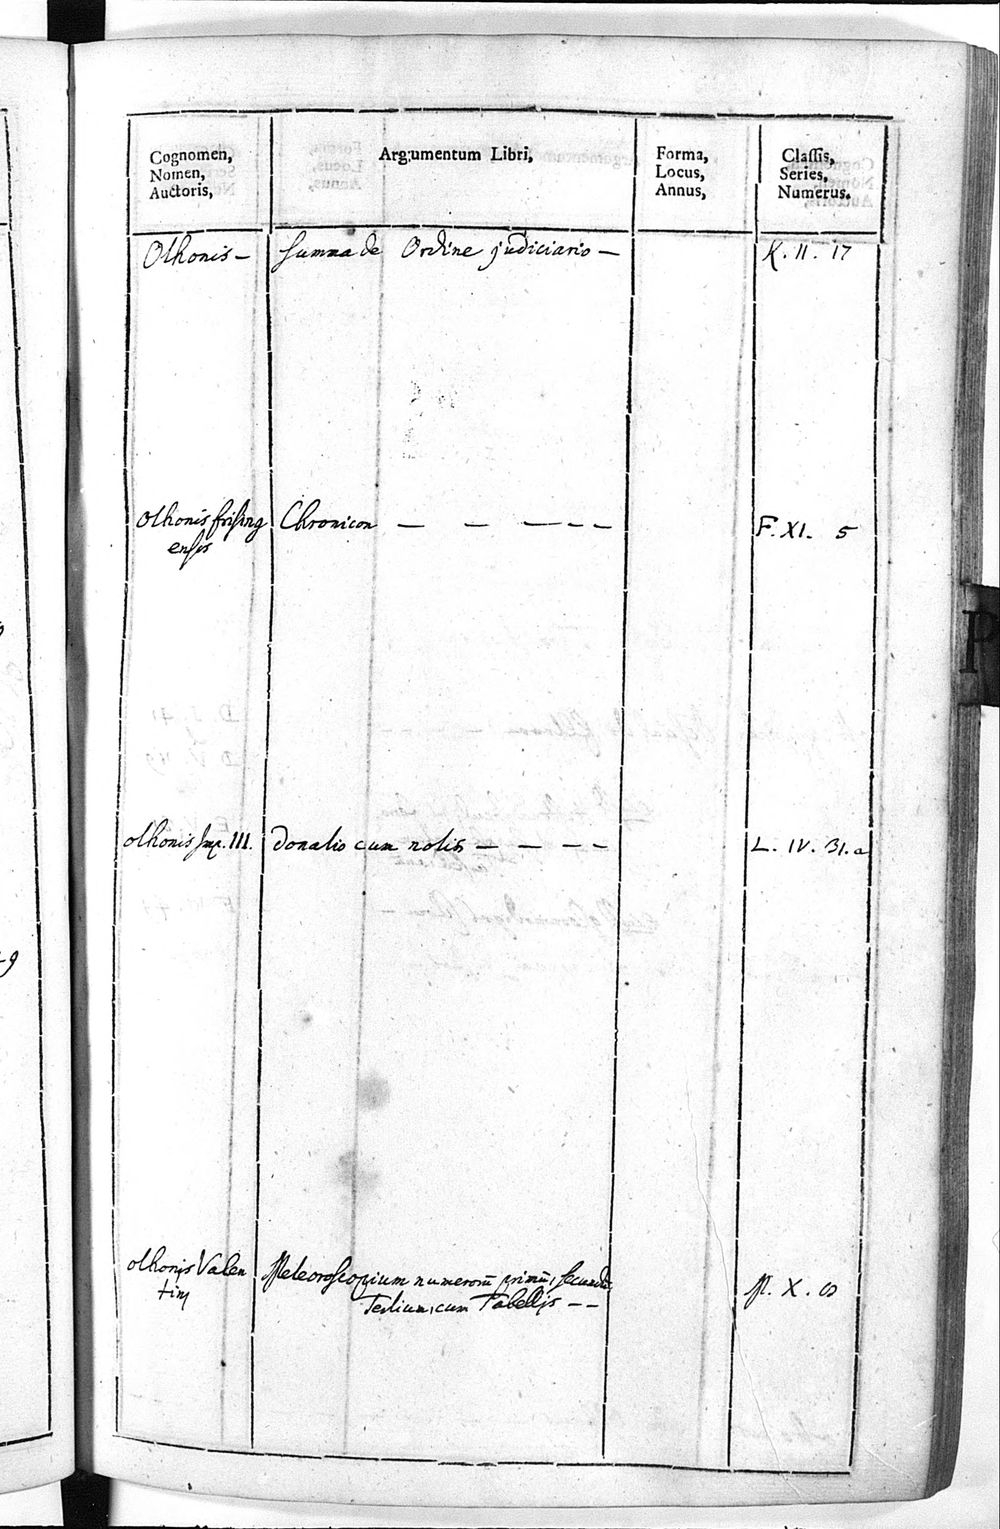 Cognomen,
Nomen,
Auctoris,
Argumentum Libri,
Forma,
Locus,
Annus,
Classis,
Series,
Numerus.
Othonis — Summa de Ordine judiciario — K. II. 17
Othonis frising Chronicon — — — — — F. XI. 5
ensis
Othonis Imp. III. Donatio cum notis — — — — L. IV. 31.a
Othonis Valen Meteoroscopium numerorū primū, secundū
tini Tertium, cum Tabellis — — M. X.
P